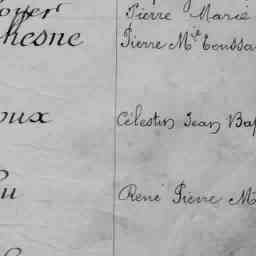 oyer Pierre Marie
hesne Pierre M.ie Toussa
oux Célestin Jean Bap
u René Pierre M